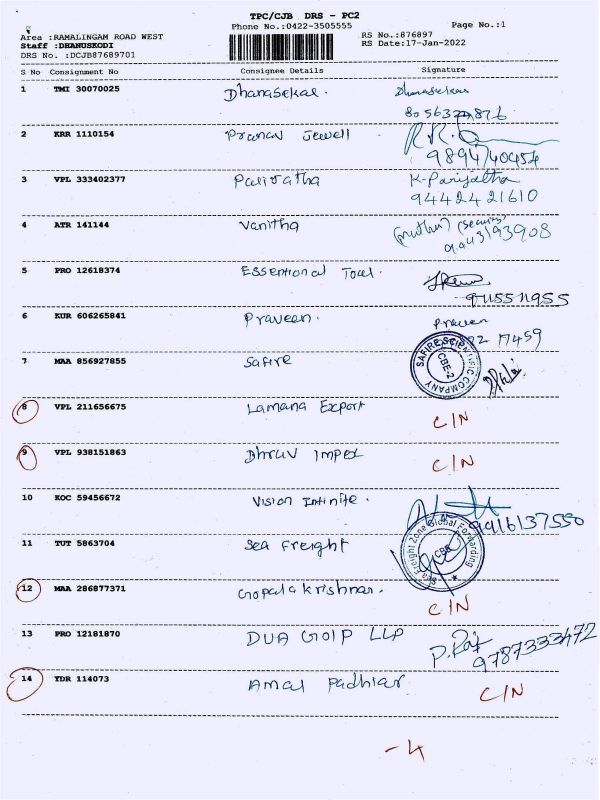 TPC/CJB DRS - PC2
Phone No.:0422-3505555
Page No.:1
Area :RAMALINGAM ROAD WEST
Staff :DHANUSKODI
DRS No. :DCJB87689701
RS No.:876897
RS Date:17-Jan-2022
S No Consignment No Consignee Details Signature
1 TMI 30070025 Dhanasekar. Dhanasekar
2 KRR 1110154 Pranav Jewell
9894740454
3 VPL 333402377 Parivatha K. Parijatha
9442421610
4 ATR 141144 Vanitha (Security)
9943193908
5 PRO 12618374 Essentional
6 KUR 606265841 Praveen. Praveen
17459
7 MAA 856927855 Safire
SAFIRE SCIENTIFIC COMPANY
CBE-2
8 VPL 211656675 Lamana Export C/N
9 VPL 938151863 Dhruv Impex C/N
10 KOC 59456672 Vision Infinite.
9916137550
11 TUT 5863704 Sea Freight
Sea Freight Zone Global Forwarding
CBE
12 MAA 286877371 Gopalakrishnan. C/N
13 PRO 12181870 DUA GOIP LLP P. Raj
9787333472
14 TDR 114073 Amal Padhiar C/N
-4